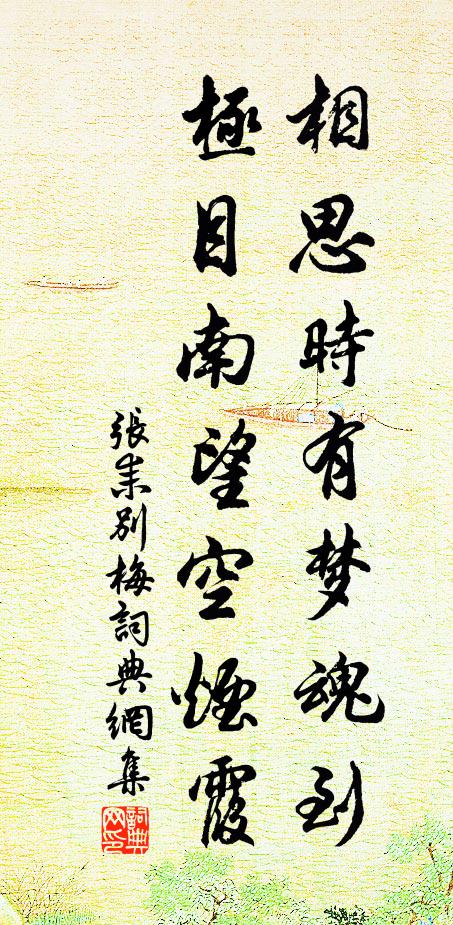 相思時有梦魂到
極目南望空煙霞
張耒別梅詞典網集
詞典
网印